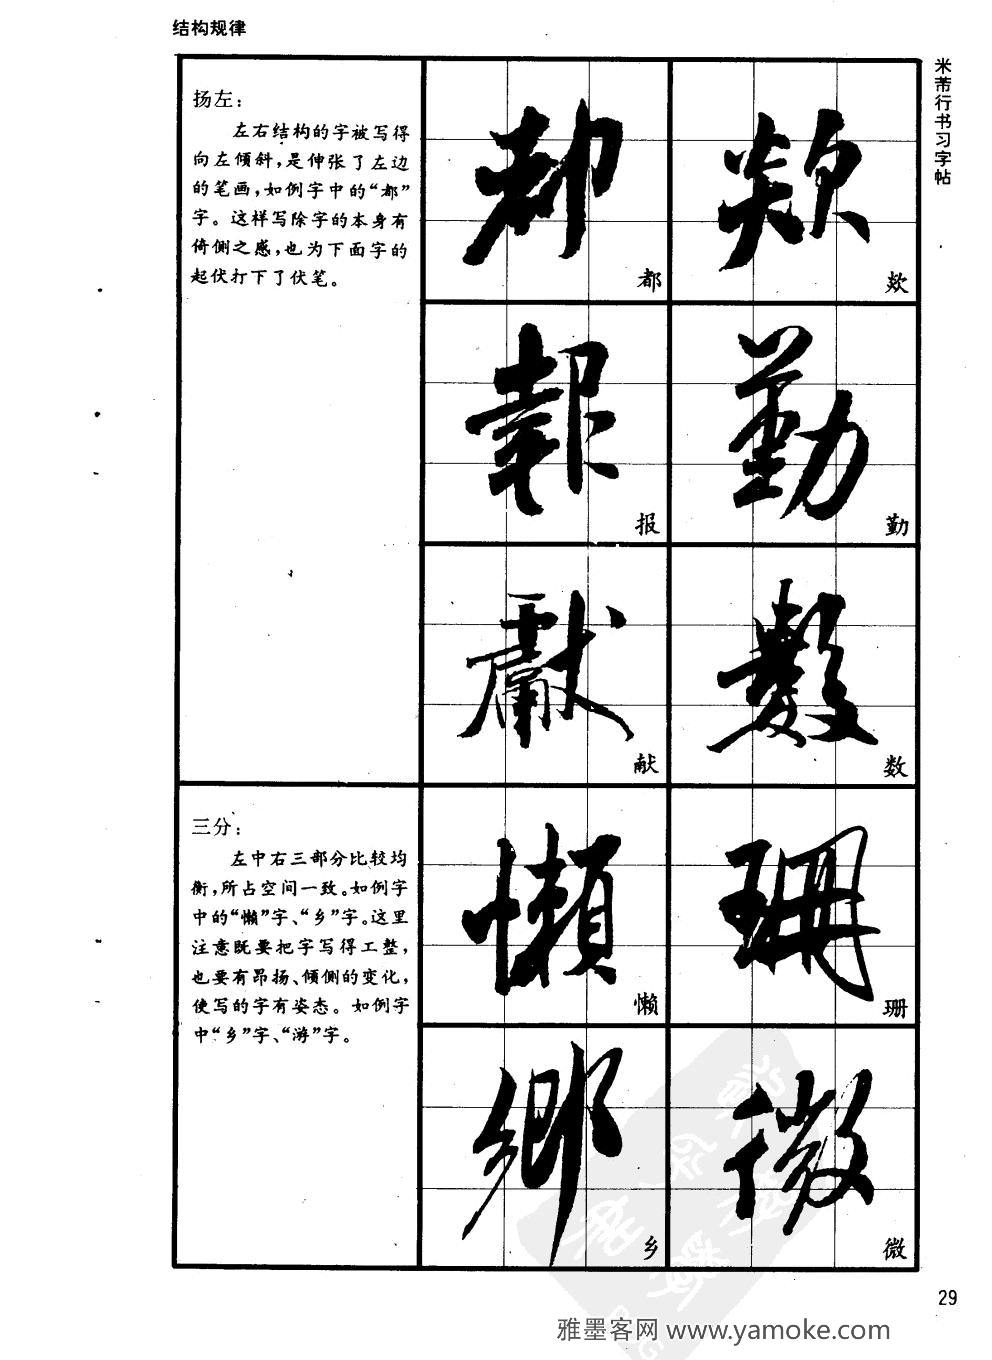 结构规律
米芾行书习字帖
扬左:
左右结构的字被写得
向左倾斜,是伸张了左边
的笔画,如例字中的“都”
字。这样写除字的本身有
倚侧之感,也为下面字的
起伏打下了伏笔。
都
欻
报
勤
献
数
三分:
左中右三部分比较均
衡,所占空间一致。如例字
中的“懒”字、“乡”字。这里
注意既要把字写得工整,
也要有昂扬、倾侧的变化,
使写的字有姿态。如例字
中“乡”字、“游”字。
懒
珊
乡
微
29
雅墨客网 www.yamoke.com